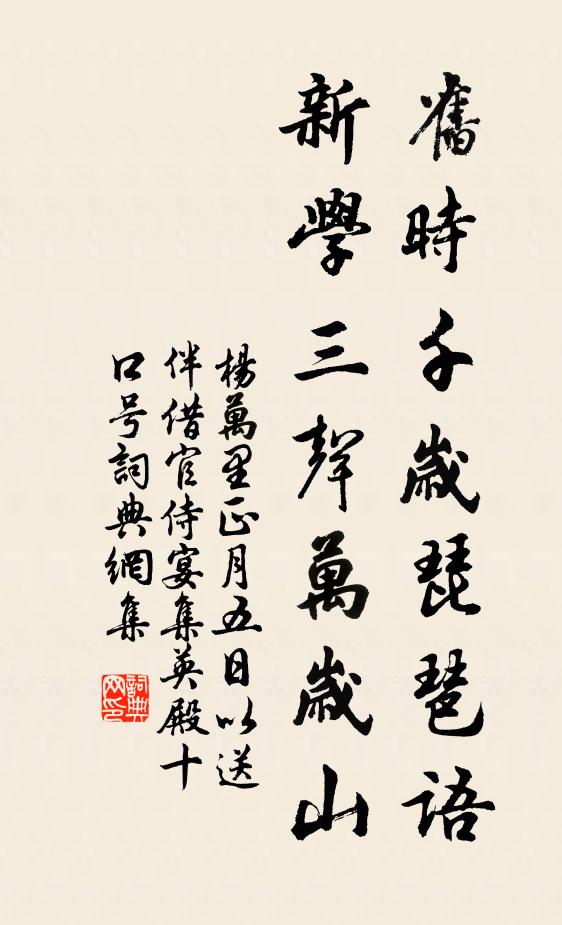 舊時千歲琵琶語
新學三聲萬歲山
楊萬里正月五日以送
伴借官侍宴集英殿十
口号詞典網集
詞典網印